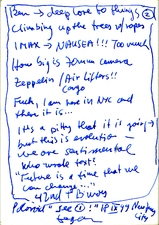 Ben → deep love to things ②
Climbing up the trees w/ ropes
IMAX → NAUSEA!!! Too much
How big is 70mm camera
Zeppelin / Air Lifters!!
Cargo
Fuck, I am here in NYC and
there it is...
It's a pitty that it is going →
but this is evolution —
We are sentimental
who wrote text?
"Future is a time that we
can change..."
42nd ↑ B'way
Polaroid "see ①!"